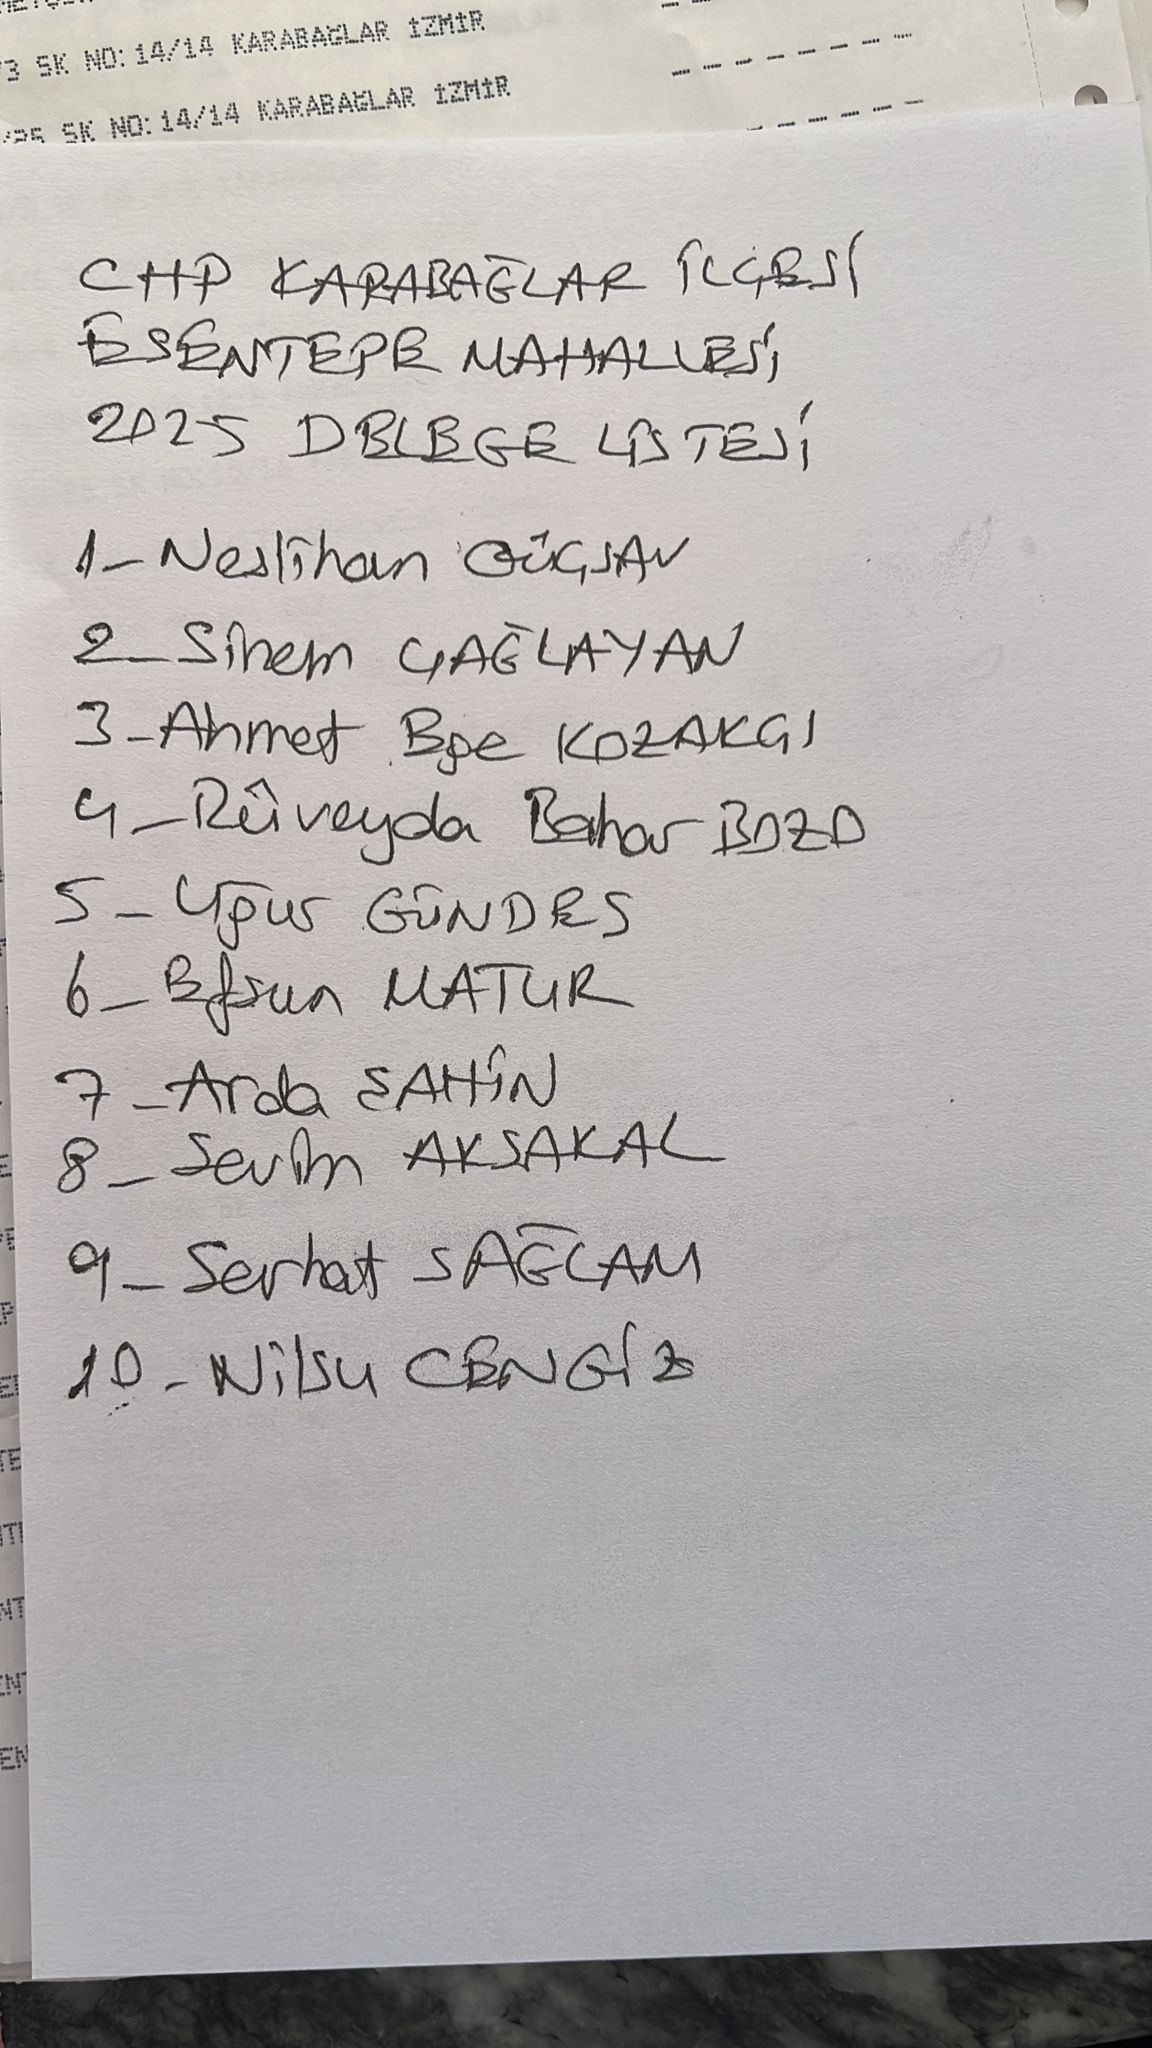 3 SK NO: 14/14 KARABAĞLAR İZMİR
SK NO: 14/14 KARABAĞLAR İZMİR
CHP KARABAĞLAR İLÇESİ
ESENTEPE MAHALLESİ
2025 DELEGE LİSTESİ
1- Neslihan GÜÇSAV
2- Sinem ÇAĞLAYAN
3- Ahmet Ege KOZAKÇI
4- Rüveyda Bahar BOZO
5- Uğur GÜNDEŞ
6- Efsun MATUR
7- Arda ŞAHİN
8- Sevim AKSAKAL
9- Serhat SAĞLAM
10- Nilsu CENGİZ